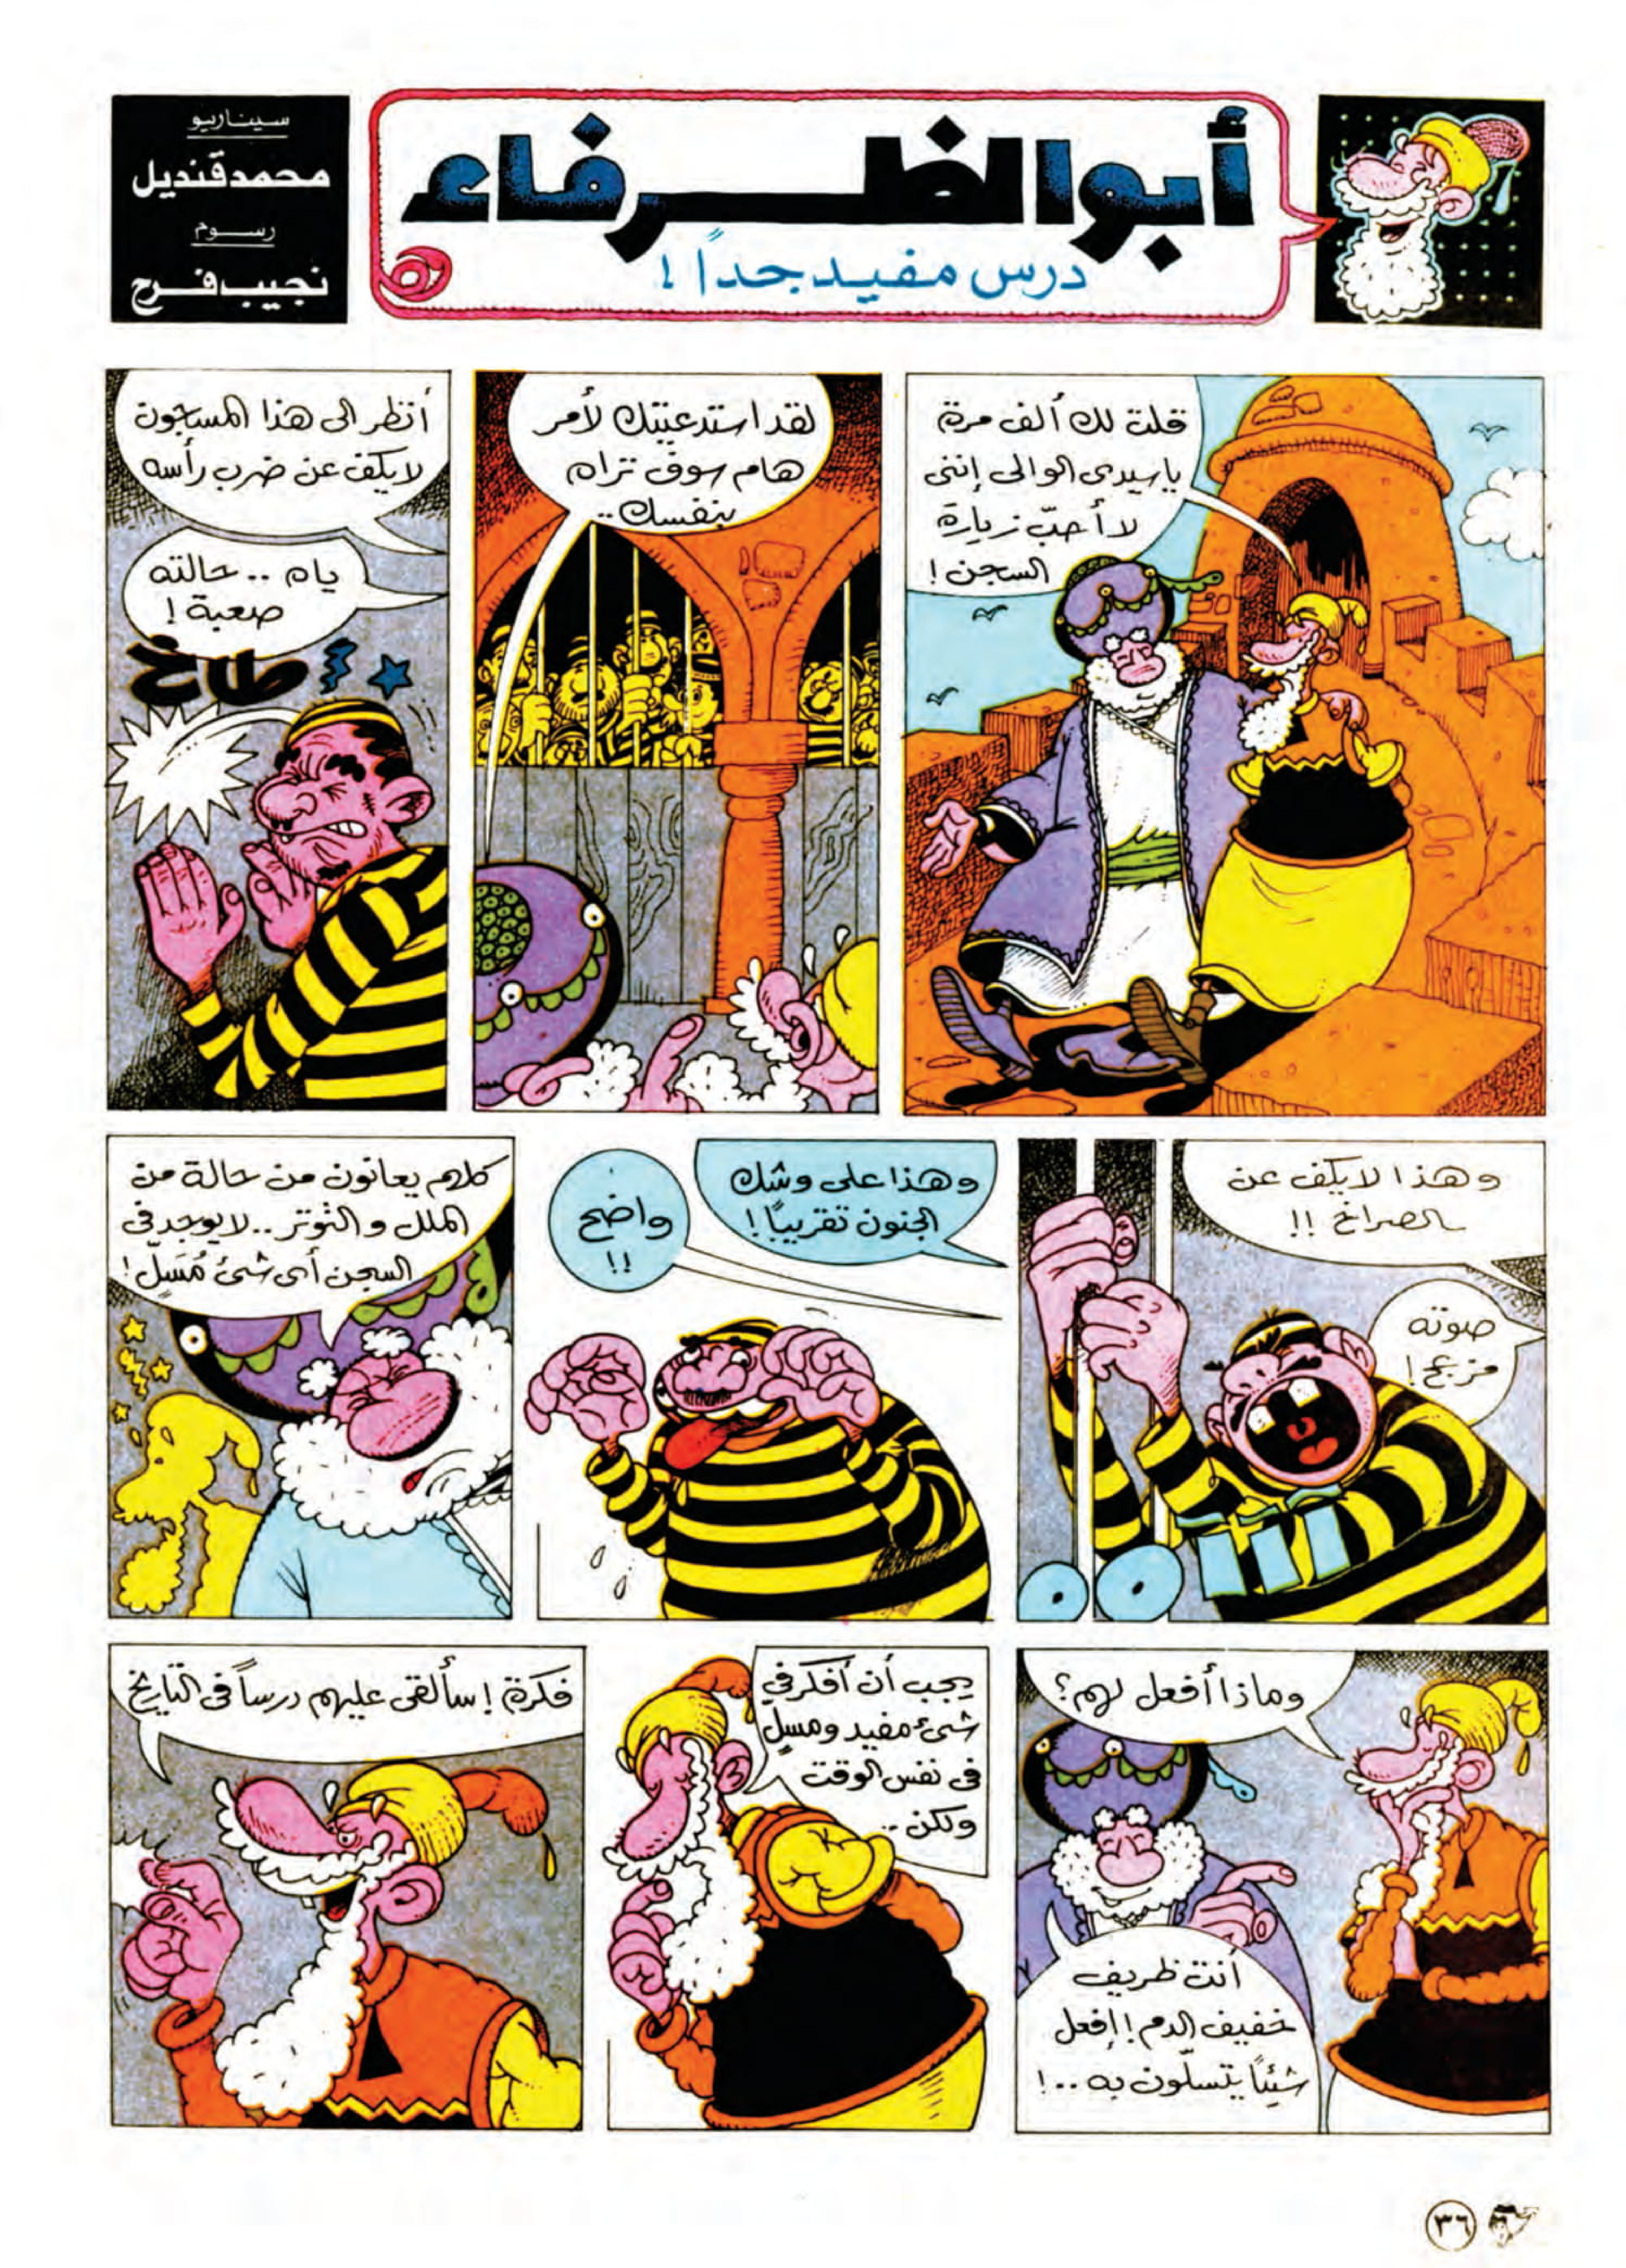 أبو الظرفاء
درس مفيد جداً !
سيناريو
محمد قنديل
رسوم
نجيب فرج
قلت لك ألف مرة
يا سيدى الوالى إننى
لا أحبّ زيارة
السجن !
لقد استدعيتك لأمر
هام سوف تراه
بنفسك ..
أنظر الى هذا المسجون
لا يكف عن ضرب رأسه
ياه .. حالته
صعبة !
طاخ
وهذا لا يكف عن
الصراخ !!
صوته
مزعج !
وهذا على وشك
الجنون تقريباً !
واضح
!!
كلهم يعانون من حالة من
الملل والتوتر .. لا يوجد فى
السجن أى شئ مُسَلٍّ !
وماذا أفعل لهم ؟
أنت ظريف
خفيف الدم ! إفعل
شيئاً يتسلّون به .. !
يجب أن أفكر في
شىء مفيد ومسلٍ
فى نفس الوقت
ولكن ..
فكرة ! سألقى عليهم درساً فى التاريخ
٣٦